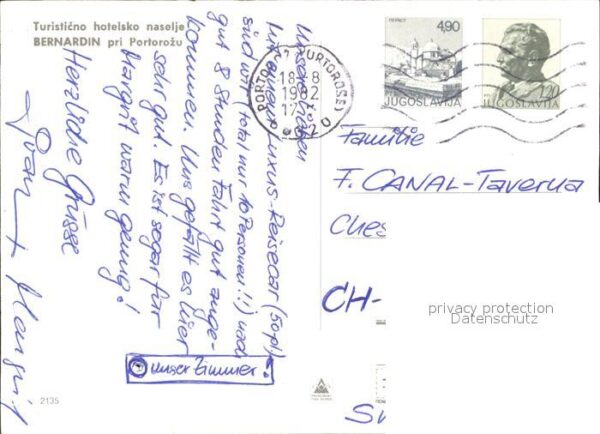 Turistično hotelsko naselje
BERNARDIN pri Portorožu
Unsere Lieben
Mit einem Luxus-Reisecar (50pl.)
sind wir (total nur 10 Personen!!) nach
gut 8 Stunden Fahrt gut ange-
kommen. Uns gefällt es hier
sehr gut. Es ist sogar für
Margrit warm genug!
Herzliche Grüsse
Margrit
unser Zimmer!
2135
PORTOROŽ (PORTOROSE)
18-8
1982
17
4,90
JUGOSLAVIJA
1,20
JUGOSLAVIJA
Familie
F. CANAL-Taverna
Ches
CH-
privacy protection
Datenschutz